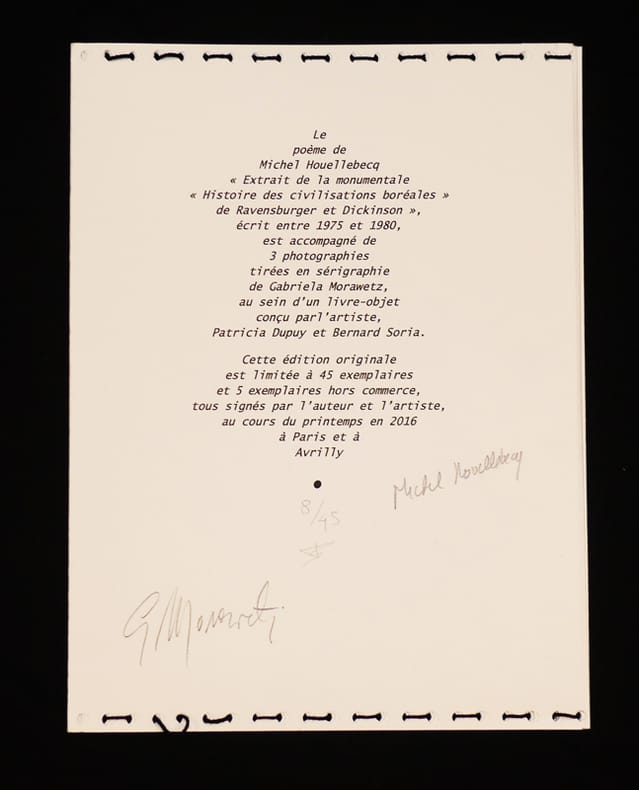 Le
poème de
Michel Houellebecq
« Extrait de la monumentale
« Histoire des civilisations boréales »
de Ravensburger et Dickinson »,
écrit entre 1975 et 1980,
est accompagné de
3 photographies
tirées en sérigraphie
de Gabriela Morawetz,
au sein d'un livre-objet
conçu parl'artiste,
Patricia Dupuy et Bernard Soria.
Cette édition originale
est limitée à 45 exemplaires
et 5 exemplaires hors commerce,
tous signés par l'auteur et l'artiste,
au cours du printemps en 2016
à Paris et à
Avrilly
Michel Houellebecq
8/45
G Morawetz